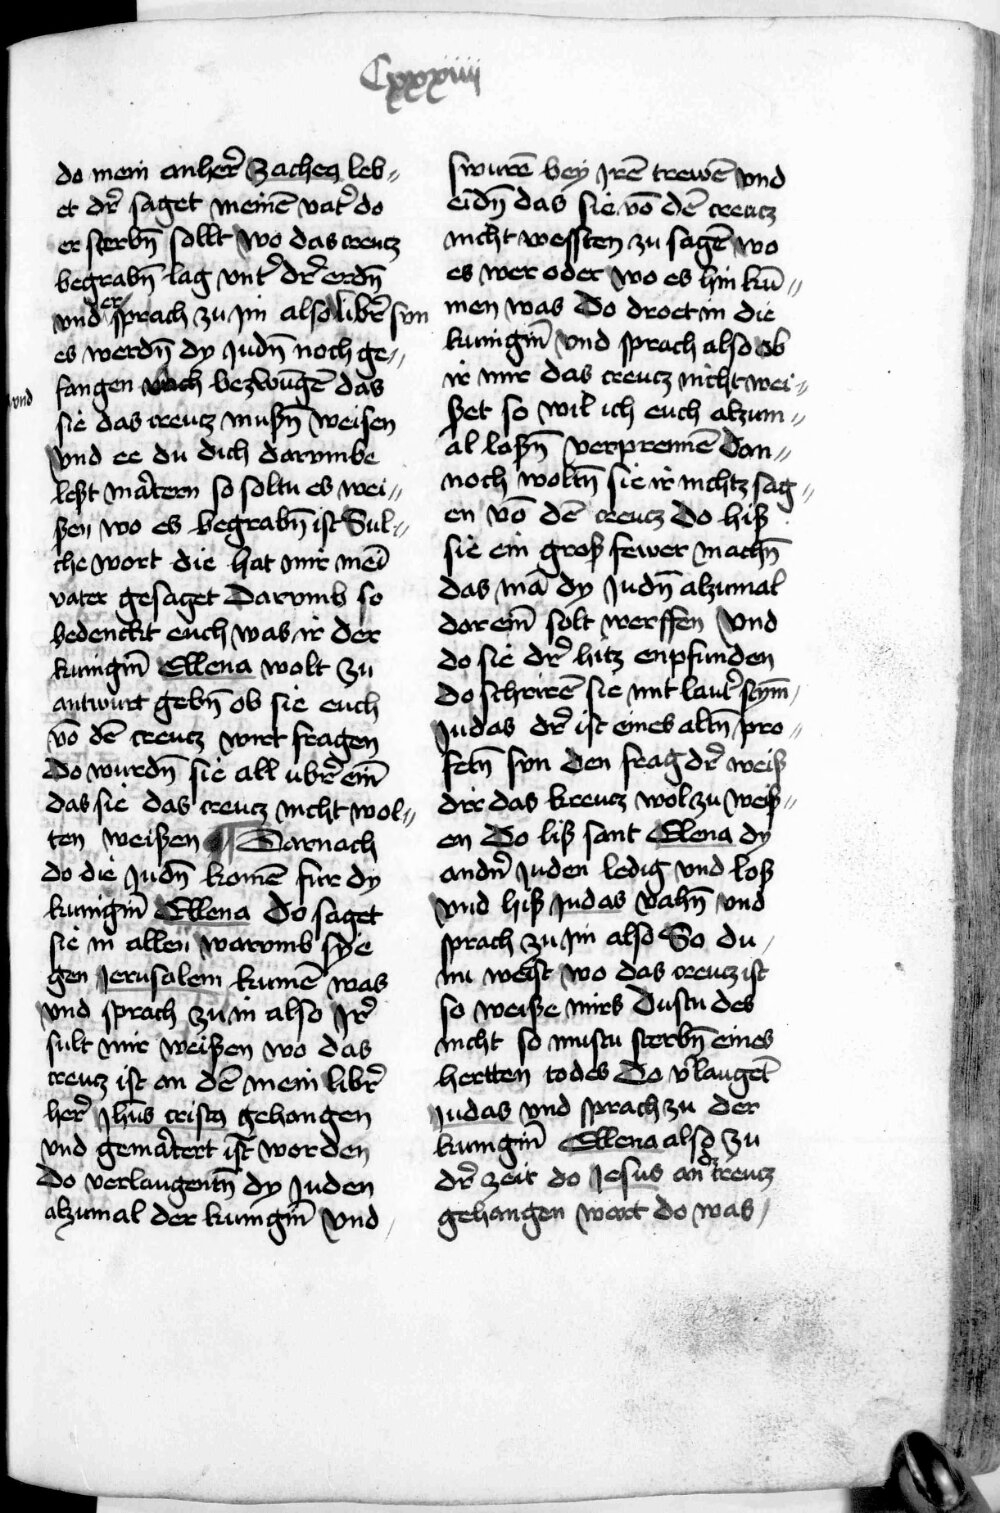 Cxxxiiij
do mein anher̄ Zacheq leb⸗
et dr̄ saget meinē vat̄ do
er sterbn̄ sollt wo das creutz
begrabn̄ lag vnt̄ dr̄ erdn̄
vnd er sprach zu jm also libr̄ sun
es werdn̄ dy judn̄ noch ge⸗
fangen vnd bezwūgē das
sie das creutz mußn̄ weisen
vnd ee du dich darvmbe
leßt mar̄tern so soltu es wei⸗
ßen wo es begrabn̄ ist Sul⸗
che wort die hat mir mei̅
vater gesaget Darvmb so
bedenckt euch was ir der
kunigin̄ Ellena wolt zu
antwurt gebn̄ ob sie euch
vō dē creutz wirt fragen
Do wurdn̄ sie all ubr̄ ein̄
das sie das creutz nicht wol⸗
ten weißen ¶ Darnach
do die judn̄ komē fur dy
kunigin̄ Ellena Do saget
sie in allen warvmb sye
gen Jerusalem kumē was
vnd sprach zu in also Jr̄
sult mir weißen wo das
creutz ist an dē mein libr̄
her̄ Jhūs cristq gehangen
vnd gemar̄tert ist worden
Do verlaugentn̄ dy Juden
alzumal der kunigin̄ vnd
swurē bey jrē trewē vnd
eidn̄ das sie vō dē creutz
nicht wessten zu sagē wo
es wer oder wo es hin kū⸗
men was Do droet in die
kunigin̄ vnd sprach also ob
ir mir das creutz nicht wei⸗
ßet so wil ich euch alzum⸗
al laßn̄ verprennē Dan⸗
noch woltn̄ sie ir nichtz sag⸗
en vō dē creutz Do hiß
sie ein groß fewer machn̄
das mā dy Judn̄ alzumal
dor ein̄ solt werffen Vnd
do sie dr̄ hitz enpfunden
Do schrirē sie mit laut̄ stym̄
Judas dr̄ ist eines altn̄ pro⸗
fetn̄ sun den frag dr̄ weiß
dir das kreutz wol zu weiß⸗
en Do liß sant Elena dy
andn̄ Juden ledig vnd loß
vnd hiß Judas vahn̄ vnd
sprach zu jm also So du
nu weist wo das creutz ist
so weiße mirs Dustu des
nicht so mustu sterbn̄ eines
hertten todes Do v̄laugēt
Judas vnd sprach zu der
kunigin̄ Ellena also zu
dr̄ zeit do Jesus an dz creutz
gehangen wart do was